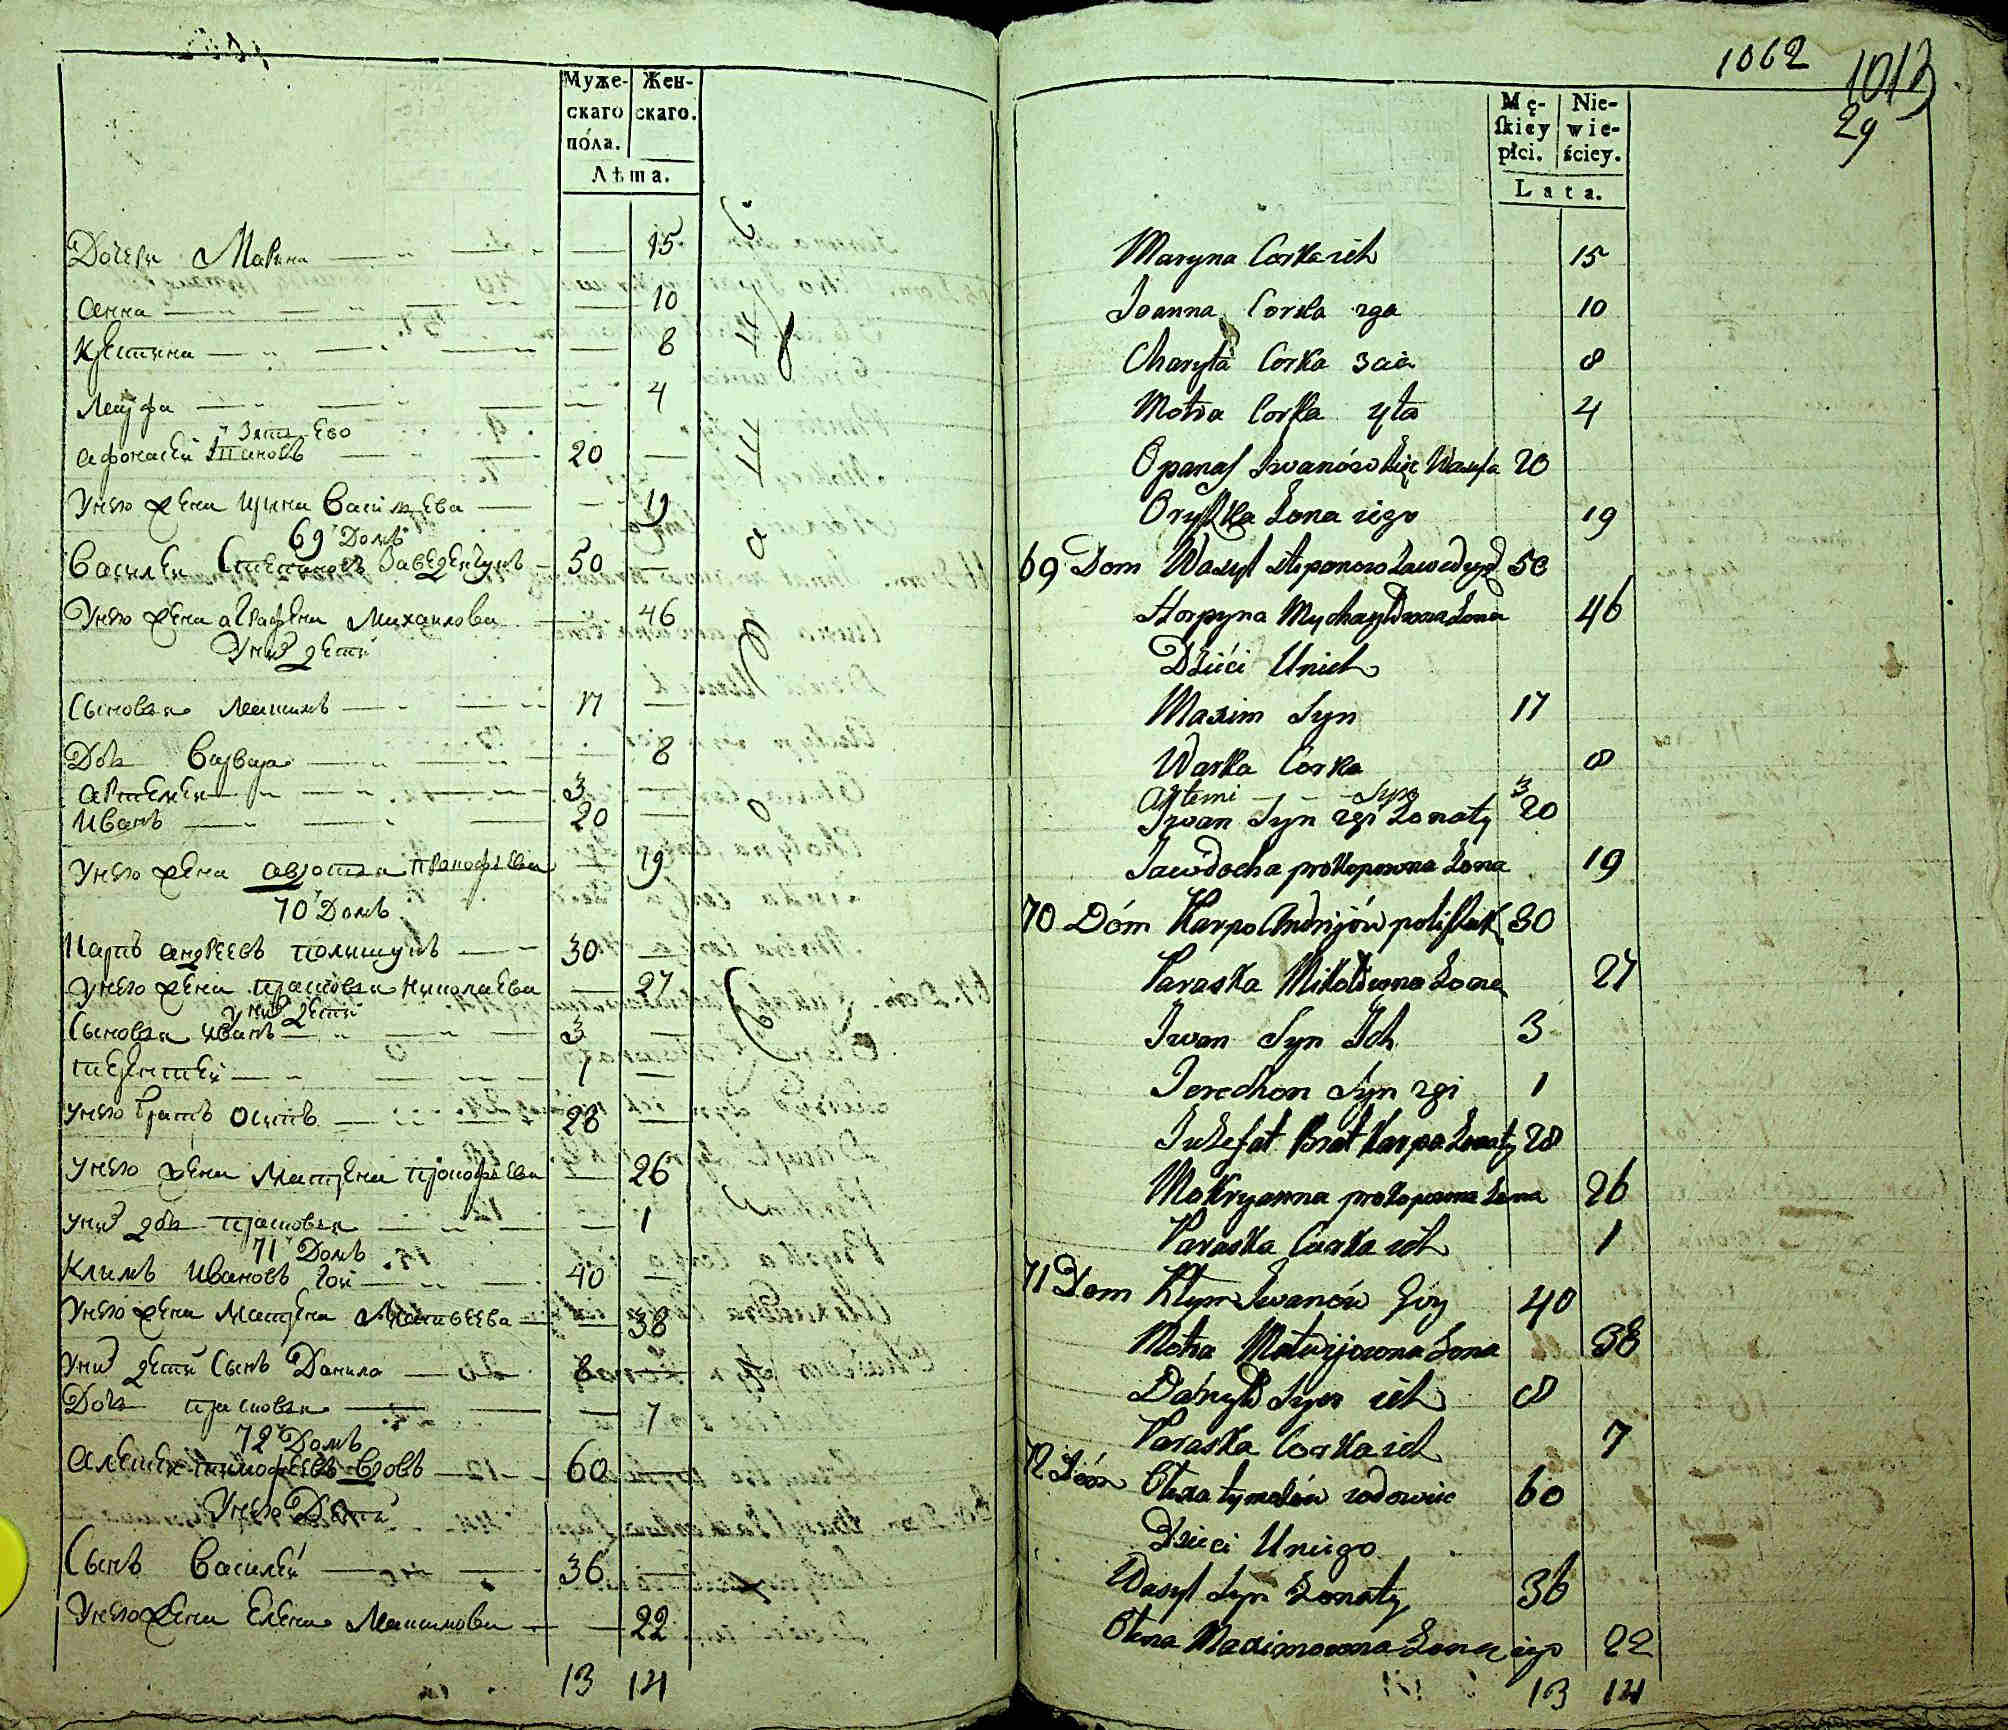 Муже-
скаго
пола.
Жен-
скаго.
Лѣта.
Дочери Марина 15
Анна 10
Крестина 8
4
Зять Ево
Афонасей Ивановъ 20
Унего жена Ирина Васильева 19
69 Домъ
Василей Степановъ 50
Унего жена Аграфена Михайлова 46
Уних дети
Сыновья Максимъ 17
Дочь Варвара 8
Артемей 3
Иванъ 20
Унего жена Авдотья Пракофьева 19
70 Домъ
Карпъ Андреевъ Полищукъ 30
Унего жена Прасковья Николаева 27
Уних дети
Сыновья Иванъ 3
Терентей 1
Унего братъ Осипъ 28
Унего жена Матрена Прокофьева 26
Уних дочь Прасковья 1
71 Домъ
Климъ Ивановъ Гой 40
Унего жена Матрена Матвеева 38
Уних дети Сынъ Данила 8
Дочь Прасковья 7
72 Домъ
Алексей Тимофеевъ вдовъ 60
Унего Дети
Сынъ Василей 36
Унего жена Елена Максимова 22
13 14
1062
1013
29
Mę-
skiey
płci.
Nie-
wie-
ściey.
Lata.
Maryna Corka ich 15
Joanna Corka 2ga 10
Charyta Corka 3cia 8
Motra Corka 4ta 4
Opanas Iwanów Zięć Wasyla 20
Oryszka Żona iego 19
69 Dom Wasyl Steponow 50
Horpyna Mychayłowna Żona 46
Dzieci Unich
Maxim Syn 17
Warka Corka 8
Artemi Syn 3
Iwan Syn 2gi Żonaty 20
Jawdocha prokopowna Żona 19
70 Dóm Karpo Andrijów poliszuk 30
Paraska Mikołowna Żona 27
Iwan Syn Ich 3
Terechon Syn 2gi 1
Juzefat Brat Karpa Żonaty 28
Mokryanna prokopowna Żona 26
Paraska Corka ich 1
71 Dom Kłym Iwanów Goy 40
Motra Matwijowna Żona 38
Danyło Syn ich 8
Paraska Corka ich 7
72 Dóm Olexa tymofiow wdowiec 60
Dzieci Uniego
Wasyl Syn Żonaty 36
Olena Maximowna Żona iego 22
13 14